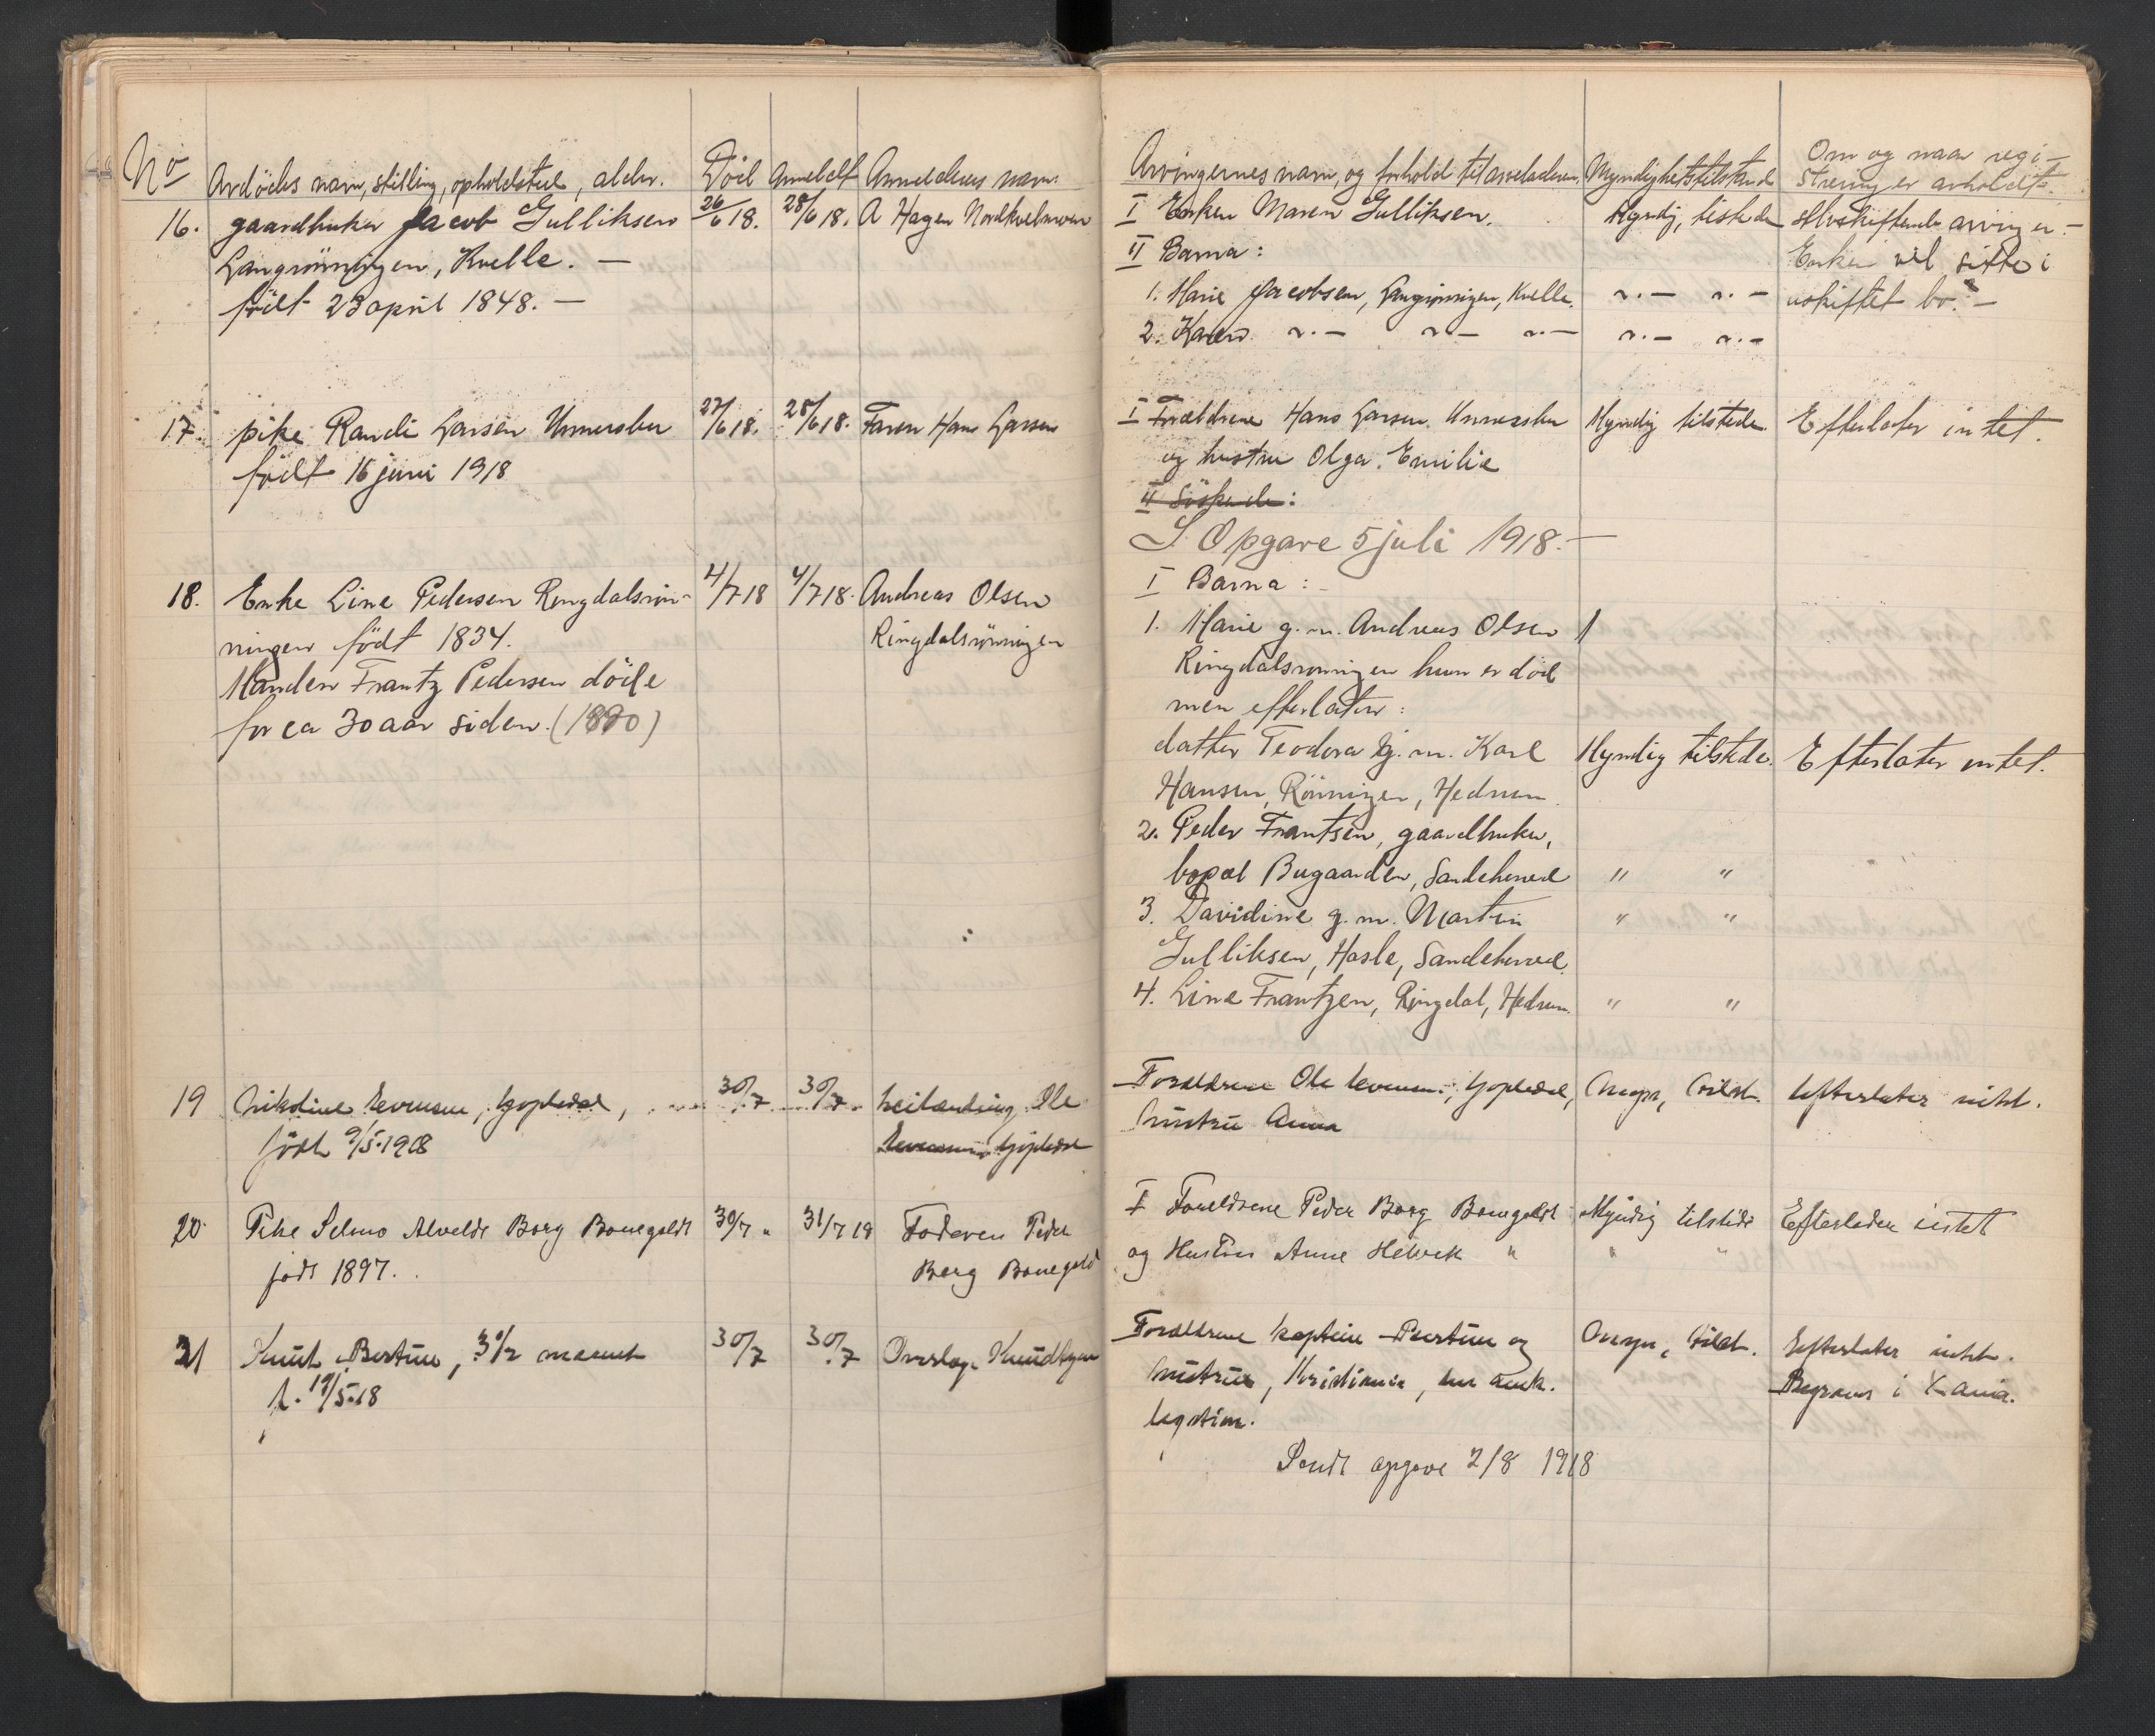 No
Avdödes navn, stilling, opholdsted, alder.
Död
Anmeldt
Anmelderens navn.
Arvingernes navn, og forhold til arveladeren.
Myndighetstilstand
Om og naar regi-
strering er avholdt.
16. gaardbruker Jacob Gulliksen
26/6 18.
28/6 18.
A Hagen Nordkvelmoen
Langrönningen, Kvelle. —
född 23 april 1848. —
I Enken Maren Gulliksen.
Myndig, tilstede
Selvskiftende arvinger. —
II Barna:
Enken vil sitte i
1. Marie Jacobsen, Langrönningen, Kvelle.
uskiftet bo. —
2. Karen
17. pike Randi Larsen Unnersbu
27/6 18.
28/6 18.
Faren Hans Larsen
född 16 juni 1918
I Forældrene Hans Larsen Unnersbu
Myndig tilstede.
Efterlater intet.
og hustru Olga Emilie
II Söskende:
S. Opgave 5 juli 1918. —
18. Enke Line Pedersen Ringdalsrön-
4/7 18
4/7 18.
Andreas Olsen
ningen född 1834.
Ringdalsrönningen
Manden Frantz Pedersen döde
for ca 30 aar siden. (1890)
I Barna:
1. Marie g. m. Andreas Olsen
Ringdalsrönningen hun er död
men efterlater:
datter Teodora g. m. Karl
Myndig tilstede.
Efterlater intet.
Hansen, Rönningen, Hedrum
2. Peder Frantsen, gaardbruker,
bopæl Bugaarden, Sandeherred
" "
3. Davidine g. m. Martin
" "
Gulliksen, Hasle, Sandeherred.
4. Line Frantzen, Ringdal, Hedrum.
" "
19 Nikoline Evensen, Gopledal,
30/7
30/7
Ole
född 9/5 1918
Gopledal
Forældrene Ole Evensen, Gopledal,
Efterlater intet.
hustru Anna
20. Pike Selmo Alvelde Borg Bonegolt
30/7 "
31/7 18
Faderen Peder
född 1897.
Borg Bonegold
I Foreldrene Peder Borg Bonegoldt
Myndig tilstede
Efterlader intet
og Hustru Anne Helvek "
" "
21 Knut Bertin, 3 1/2 maaned
30/7
30/7
Knudtzen
f. 19/5 18
Forældrene kaptein Bertin og
Efterlater intet.
hustru, Kristiania,
Begraves i X-ania.
legitim.
Sendt opgave 2/8 1918